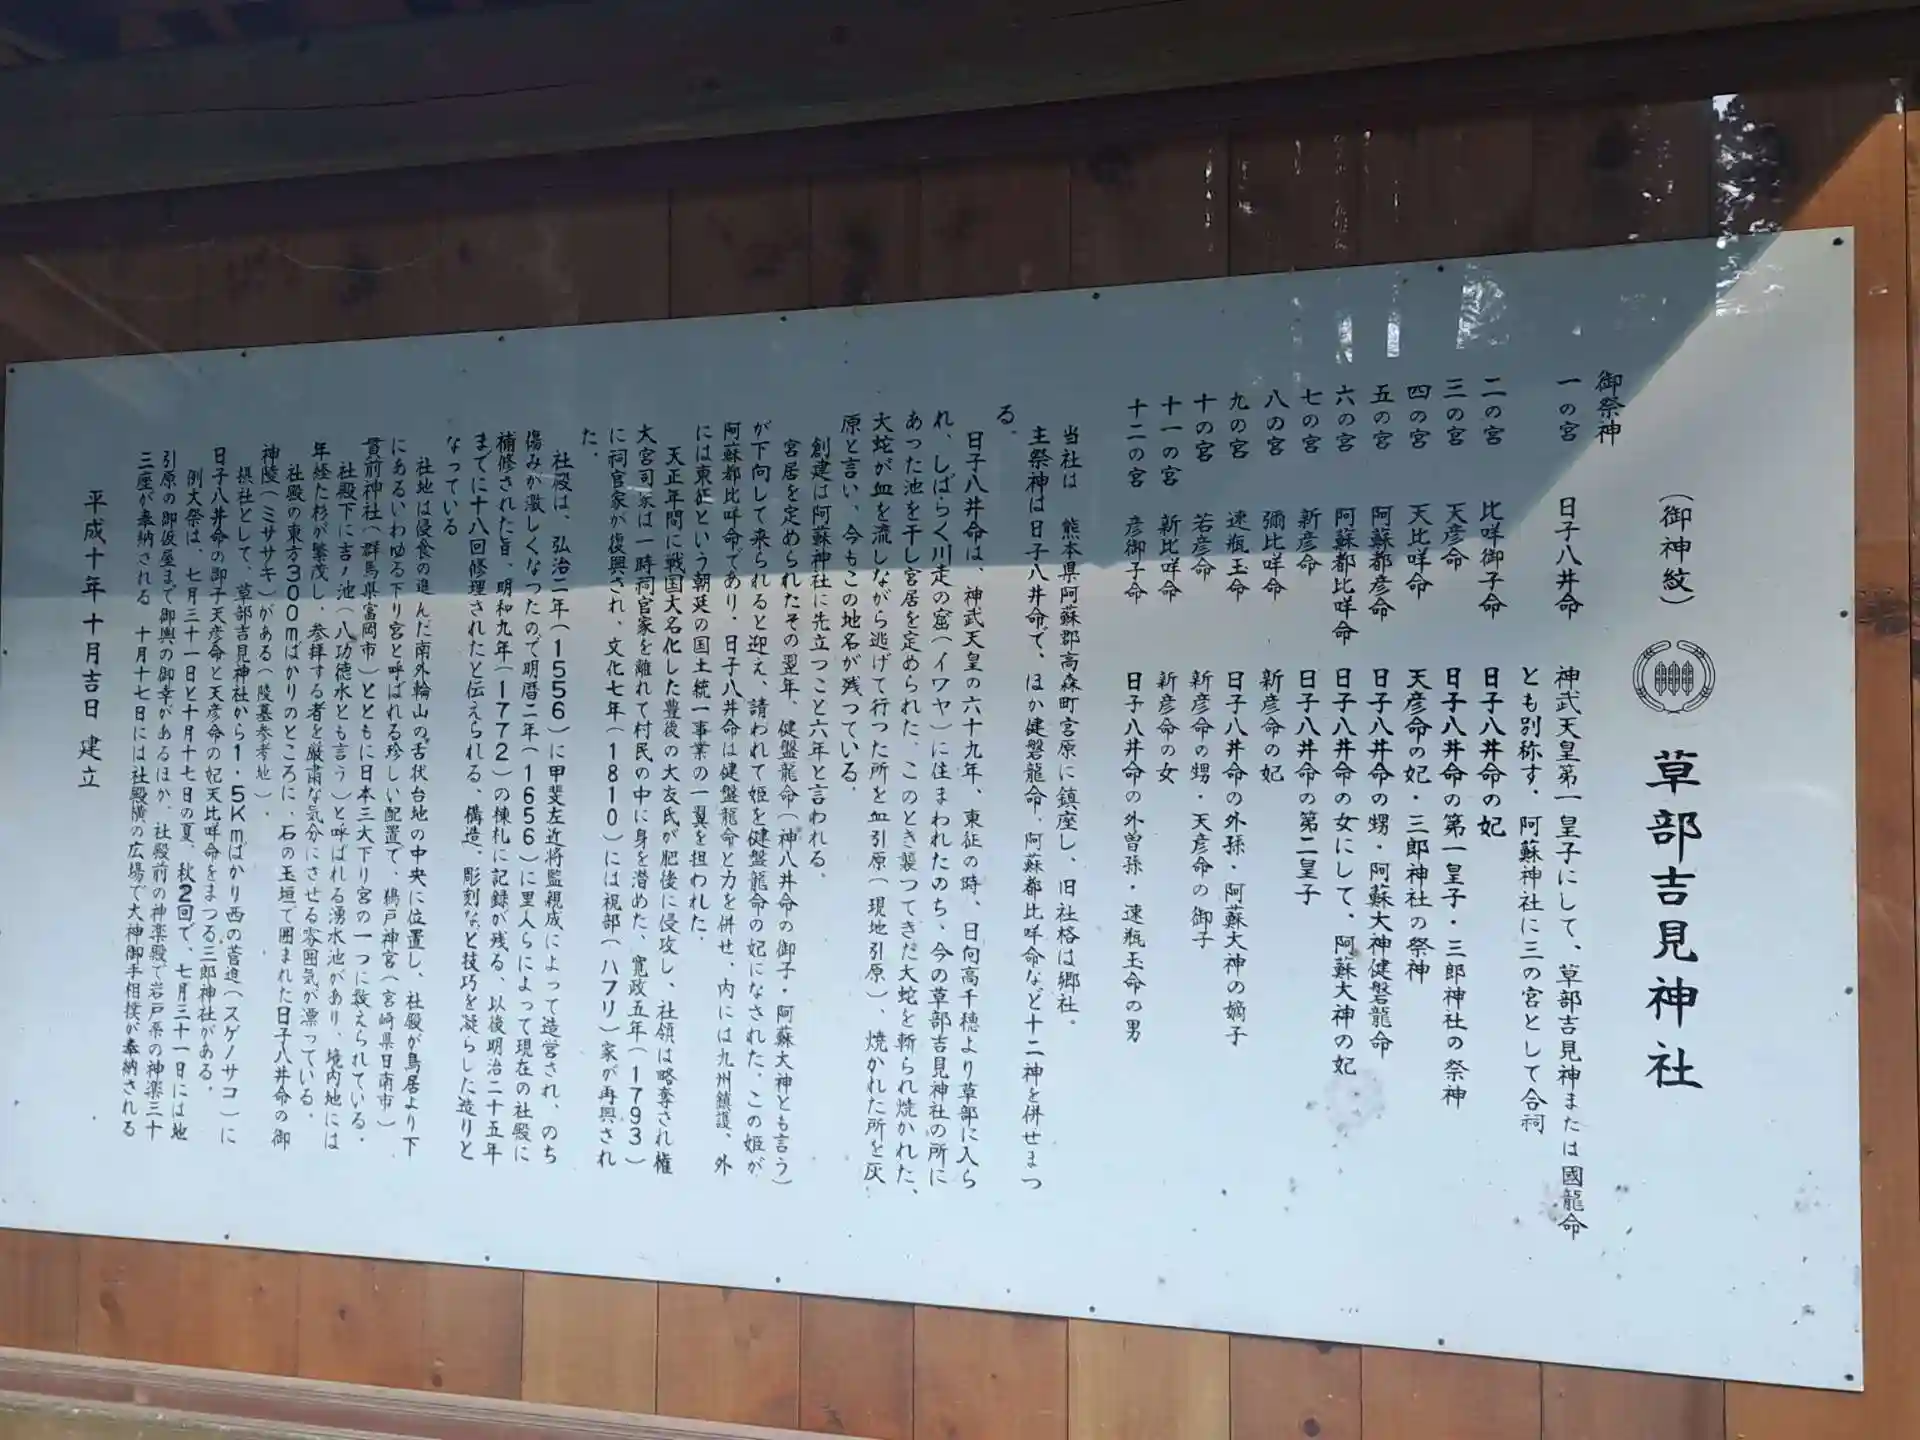 (御神紋) 草部吉見神社
御祭神
一の宮 日子八井命 神武天皇第一皇子にして、草部吉見神または國龍命
とも別称す。阿蘇神社に三の宮として合祠
二の宮 比咩御子命 日子八井命の妃
三の宮 天彦命 日子八井命の第一皇子・三郎神社の祭神
四の宮 天比咩命 天彦命の妃・三郎神社の祭神
五の宮 阿蘇都彦命 日子八井命の甥・阿蘇大神健磐龍命
六の宮 阿蘇都比咩命 日子八井命の女にして、阿蘇大神の妃
七の宮 新彦命 日子八井命の第二皇子
八の宮 彌比咩命 新彦命の妃
九の宮 速瓶玉命 日子八井命の外孫・阿蘇大神の嫡子
十の宮 若彦命 新彦命の甥・天彦命の御子
十一の宮 新比咩命 新彦命の女
十二の宮 彦御子命 日子八井命の外曽孫・速瓶玉命の男
当社は 熊本県阿蘇郡高森町宮原に鎮座し、旧社格は郷社。
主祭神は日子八井命で、ほか健磐龍命、阿蘇都比咩命など十二神を併せまつ
る。
日子八井命は、神武天皇の六十九年、東征の時、日向高千穂より草部に入ら
れ、しばらく川走の窟(イワヤ)に住まわれたのち、今の草部吉見神社の所に
あった池を干し宮居を定められた。このとき襲ってきた大蛇を斬られ焼かれた、
大蛇が血を流しながら逃げて行った所を血引原(現地引原)、焼かれた所を灰
原と言い、今もこの地名が残っている。
創建は阿蘇神社に先立つこと六年と言われる。
宮居を定められたその翌年、健盤龍命(神八井命の御子・阿蘇大神とも言う)
が下向して来られると迎え、請われて姫を健盤龍命の妃になされた。この姫が
阿蘇都比咩命であり・日子八井命は健盤龍命と力を併せ、内には九州鎮護、外
には東征という朝廷の国土統一事業の一翼を担われた。
天正年間に戦国大名化した豊後の大友氏が肥後に侵攻し、社領は略奪され権
大宮司家は一時祠官家を離れて村民の中に身を潜めた、寛政五年(1793)
に祠官家が復興され、文化七年(1810)には祝部(ハフリ)家が再興され
た。
社殿は、弘治二年(1556)に甲斐左近将監親成によって造営され、のち
傷みが激しくなったので明暦二年(1656)に里人らによって現在の社殿に
補修された旨、明和九年(1772)の棟札に記録が残る、以後明治二十五年
までに十八回修理されたと伝えられる、構造、彫刻など技巧を凝らした造りと
なっている
社地は侵食の進んだ南外輪山の舌状台地の中央に位置し、社殿が鳥居より下
にあるいわゆる下り宮と呼ばれる珍しい配置で、鵜戸神宮(宮崎県日南市)
貫前神社(群馬県富岡市)とともに日本三大下り宮の一つに数えられている。
社殿下に吉ノ池(八功徳水とも言う)と呼ばれる湧水池があり、境内地には
年経た杉が繁茂し、参拝する者を厳粛な気分にさせる雰囲気が漂っている。
社殿の東方300mばかりのところに、石の玉垣で囲まれた日子八井命の御
神陵(ミササキ)がある(陵墓参考地)。
摂社として、草部吉見神社から1・5Kmばかり西の菅迫(スゲノサコ)に
日子八井命の御子天彦命と天彦命の妃天比咩命をまつる三郎神社がある。
例大祭は、七月三十一日と十月十七日の夏、秋2回で、七月三十一日には地
引原の御仮屋まで御輿の御幸があるほか、社殿前の神楽殿で岩戸系の神楽三十
三座が奉納される 十月十七日には社殿横の広場で大神御手相撲が奉納される
平成十年十月吉日 建立